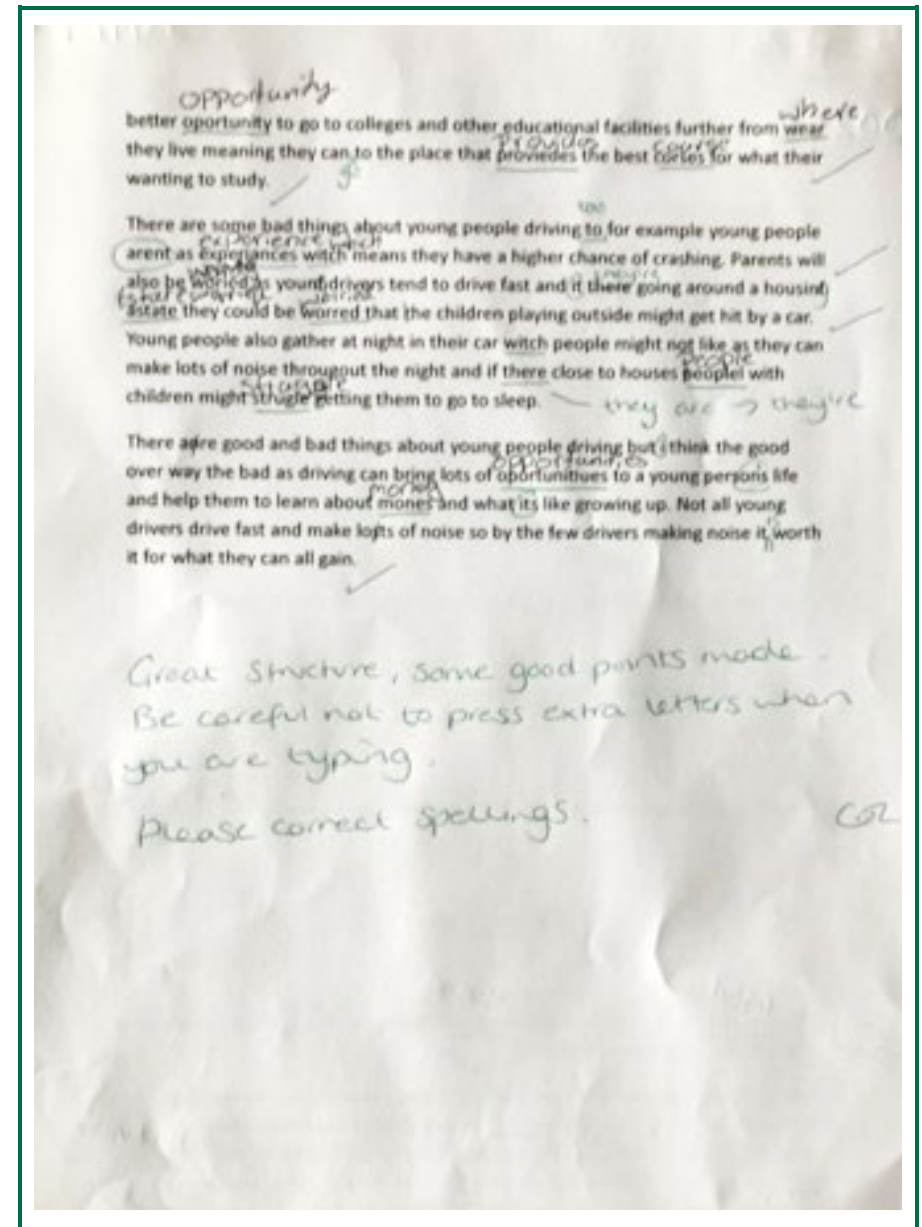 opportunity where
better oportunity to go to colleges and other educational facilities further from wear
provides course
they live meaning they can to the place that proviedes the best corles for what their
go
wanting to study.
too
There are some bad things about young people driving to for example young people
experience which
arent as experiances witch means they have a higher chance of crashing. Parents will
worried they're
also be woried as young drivors tend to drive fast and if there going around a housing
Estate worried
astate they could be worred that the children playing outside might get hit by a car.
Young people also gather at night in their car witch people might not like as they can
people
make lots of noise througout the night and if there close to houses peoplel with
struggle
children might strugle getting them to go to sleep. they are → they're
There are good and bad things about young people driving but i think the good
opportunities
over way the bad as driving can bring lots of oportunitiues to a young persons life
money
and help them to learn about mones and what its like growing up. Not all young
drivers drive fast and make lots of noise so by the few drivers making noise it worth
it for what they can all gain.
Great structure, some good points made.
Be careful not to press extra letters when
you are typing.
Please correct spellings.